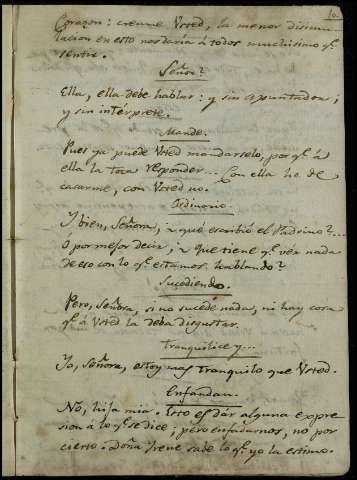 10.
Corazon: creame Usted, la menor disimu-
lacion en esto nos daría à todos muchisimo qe.
sentir.
Señor?
Ella, ella debe hablar: y sin apuntador,
y sin intérprete.
Mande.
Pues ya puede Usted mandarselo, por qe. à
ella la toca responder... Con ella he de
casarme, con Usted no.
Ordinario.
Y bien, Señora, ¿ qué escribió el Padrino?...
O por mejor decir, ¿ que tiene qe. vér nada
de eso con lo qe. estamos hablando?
Sucediendo.
Pero, Señora, si no sucede nada, ni hay cosa
qe. à Usted la deba disgustar.
Tranquilice y...
Yo, Señora, estoy mas tranquilo que Usted.
Enfandan.
No, hija mia. Esto es dár alguna expre
sion à lo qe. se dice: pero enfadarnos, no por
cierto. Doña Irene sabe lo qe. yo la estimo.